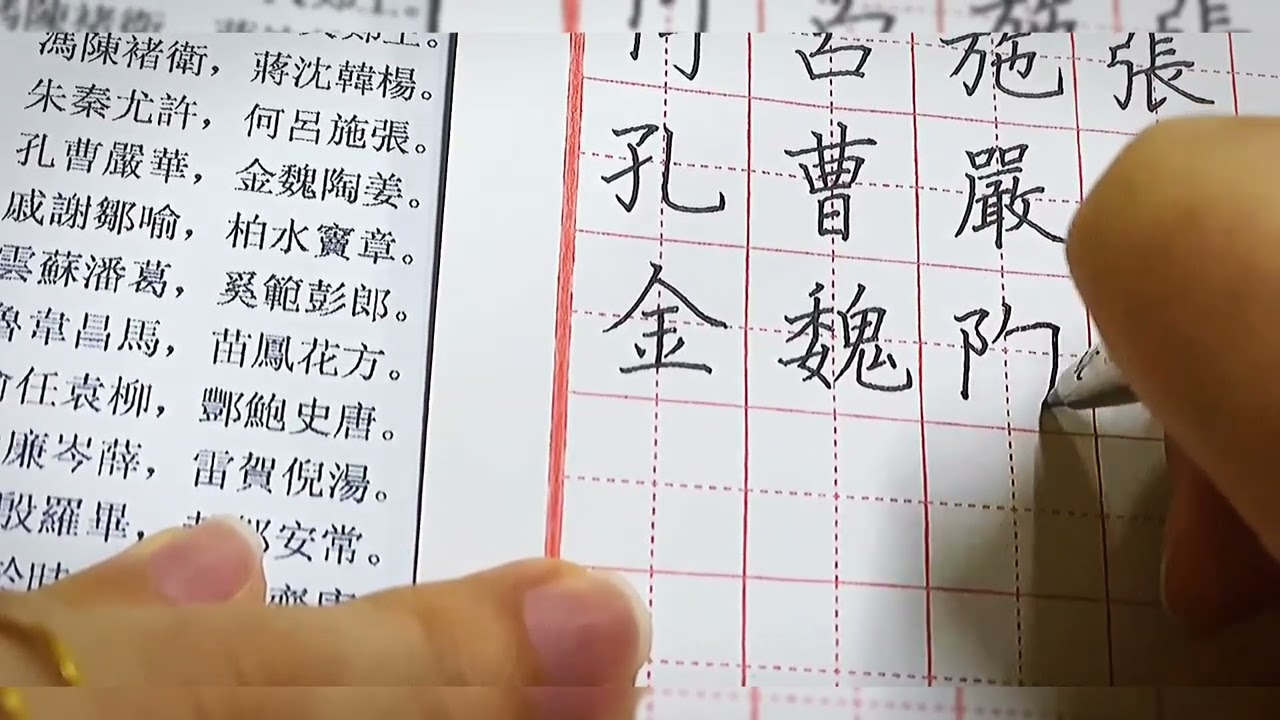 馮陳褚衛，蔣沈韓楊。
朱秦尤許，何呂施張。
孔曹嚴華，金魏陶姜。
戚謝鄒喻，柏水竇章。
雲蘇潘葛，奚範彭郎。
魯韋昌馬，苗鳳花方。
任袁柳，酆鮑史唐。
廉岑薛，雷賀倪湯。
殷羅畢，安常。
何 呂 施 張
孔 曹 嚴
金 魏